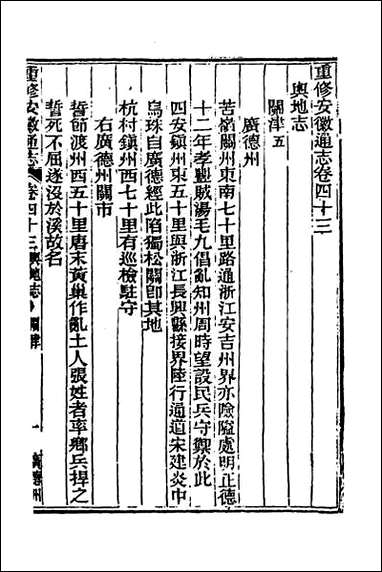 重修安徽通志卷四十三
輿地志
關津五
廣德州
苦嶺關州東南七十里路通浙江安吉州界亦險隘處明正德
十二年孝豐賊湯毛九倡亂知州周時望設民兵守禦於此
四安鎮州東五十里與浙江長興縣接界陸行通道宋建炎中
烏珠自廣德經此陷獨松關卽其地
杭村鎮州西七十里有巡檢駐守
右廣德州關市
誓節渡州西五十里唐末黃巢作亂土人張姓者率鄉兵捍之
誓死不屈遂沒於溪故名
重修安徽通志 卷四十三 輿地志 關津 一 廣德州